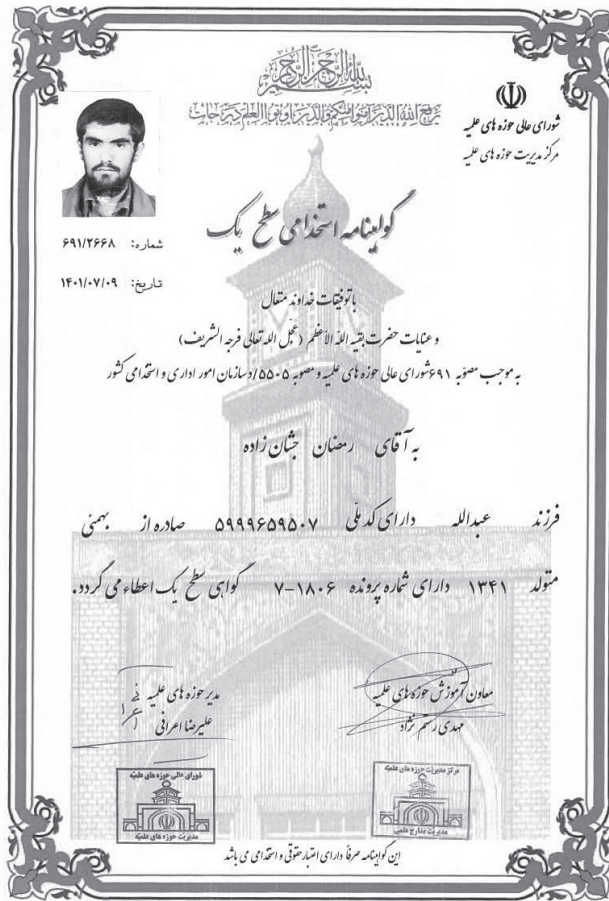 بسم الله الرحمن الرحیم
یرفع الله الذین آمنوا منکم والذین اوتوا العلم درجات
شورای عالی حوزه های علمیه
مرکز مدیریت حوزه های علمیه
گواهینامه استخدامی سطح یک
شماره: ۶۹۱/۲۶۶۸
تاریخ: ۱۴۰۱/۰۷/۰۹
با توفیقات خداوند متعال
و عنایات حضرت بقیه الله الأعظم (عجل الله تعالی فرجه الشریف)
به موجب مصوبه ۶۹۱ شورای عالی حوزه های علمیه و مصوبه ۵۵۰۵/د سازمان امور اداری و استخدامی کشور
به آقای رمضان جشان زاده
فرزند عبدالله دارای کد ملی ۵۹۹۹۶۵۹۵۰۷ صادره از بهمئی
متولد ۱۳۴۱ دارای شماره پرونده ۱۸۰۶-۷ گواهی سطح یک اعطاء می گردد.
معاون آموزش حوزه های علمیه
مهدی رستم نژاد
مدیر حوزه های علمیه
علیرضا اعرافی
مرکز مدیریت حوزه های علمیه
مدیریت مدارج علمی
شورای عالی حوزه های علمیه
مدیریت حوزه های علمیه
این گواهینامه صرفاً دارای اعتبار حقوقی و استخدامی می باشد